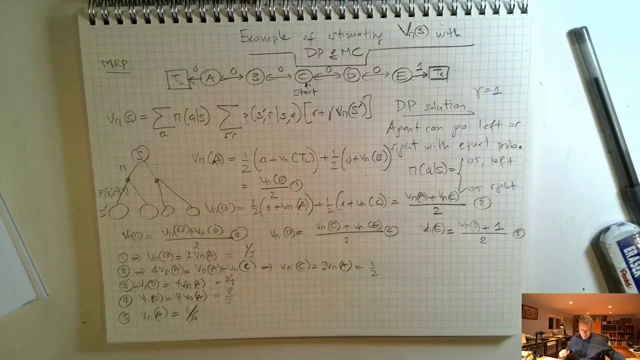 Example of estimating Vπ(s) with
DP & MC
MRP
T_L ← 0 A 0 B 0 C 0 D 0 E 1 → T_R
start
Vπ(s) = Σ_a π(a|s) Σ_s',r P(s',r|s,a) [r+γVπ(s')]
DP solution γ=1
Agent can go left or
right with equal prob.
π(a|s) = { 0.5, left
0.5 right
S
π
s'
Vπ(A) = 1/2 (0+Vπ(T_L)) + 1/2 (0+Vπ(B))
= Vπ(B)/2 ①
Vπ(B) = 1/2 (0+Vπ(A)) + 1/2 (0+Vπ(C)) = (Vπ(A)+Vπ(C))/2 ②
Vπ(C) = (Vπ(B)+Vπ(D))/2 ③ Vπ(D) = (Vπ(C)+Vπ(E))/2 ④ Vπ(E) = (Vπ(D)+1)/2 ⑤
① ⇒ Vπ(B) = 2Vπ(A) = 1/3
② ⇒ 4Vπ(A) = Vπ(A)+Vπ(C) ⇒ Vπ(C) = 3Vπ(A) = 1/2
③ ⇒ Vπ(D) = 4Vπ(A) = 2/3
⑤ Vπ(A) = 1/6
ERASER